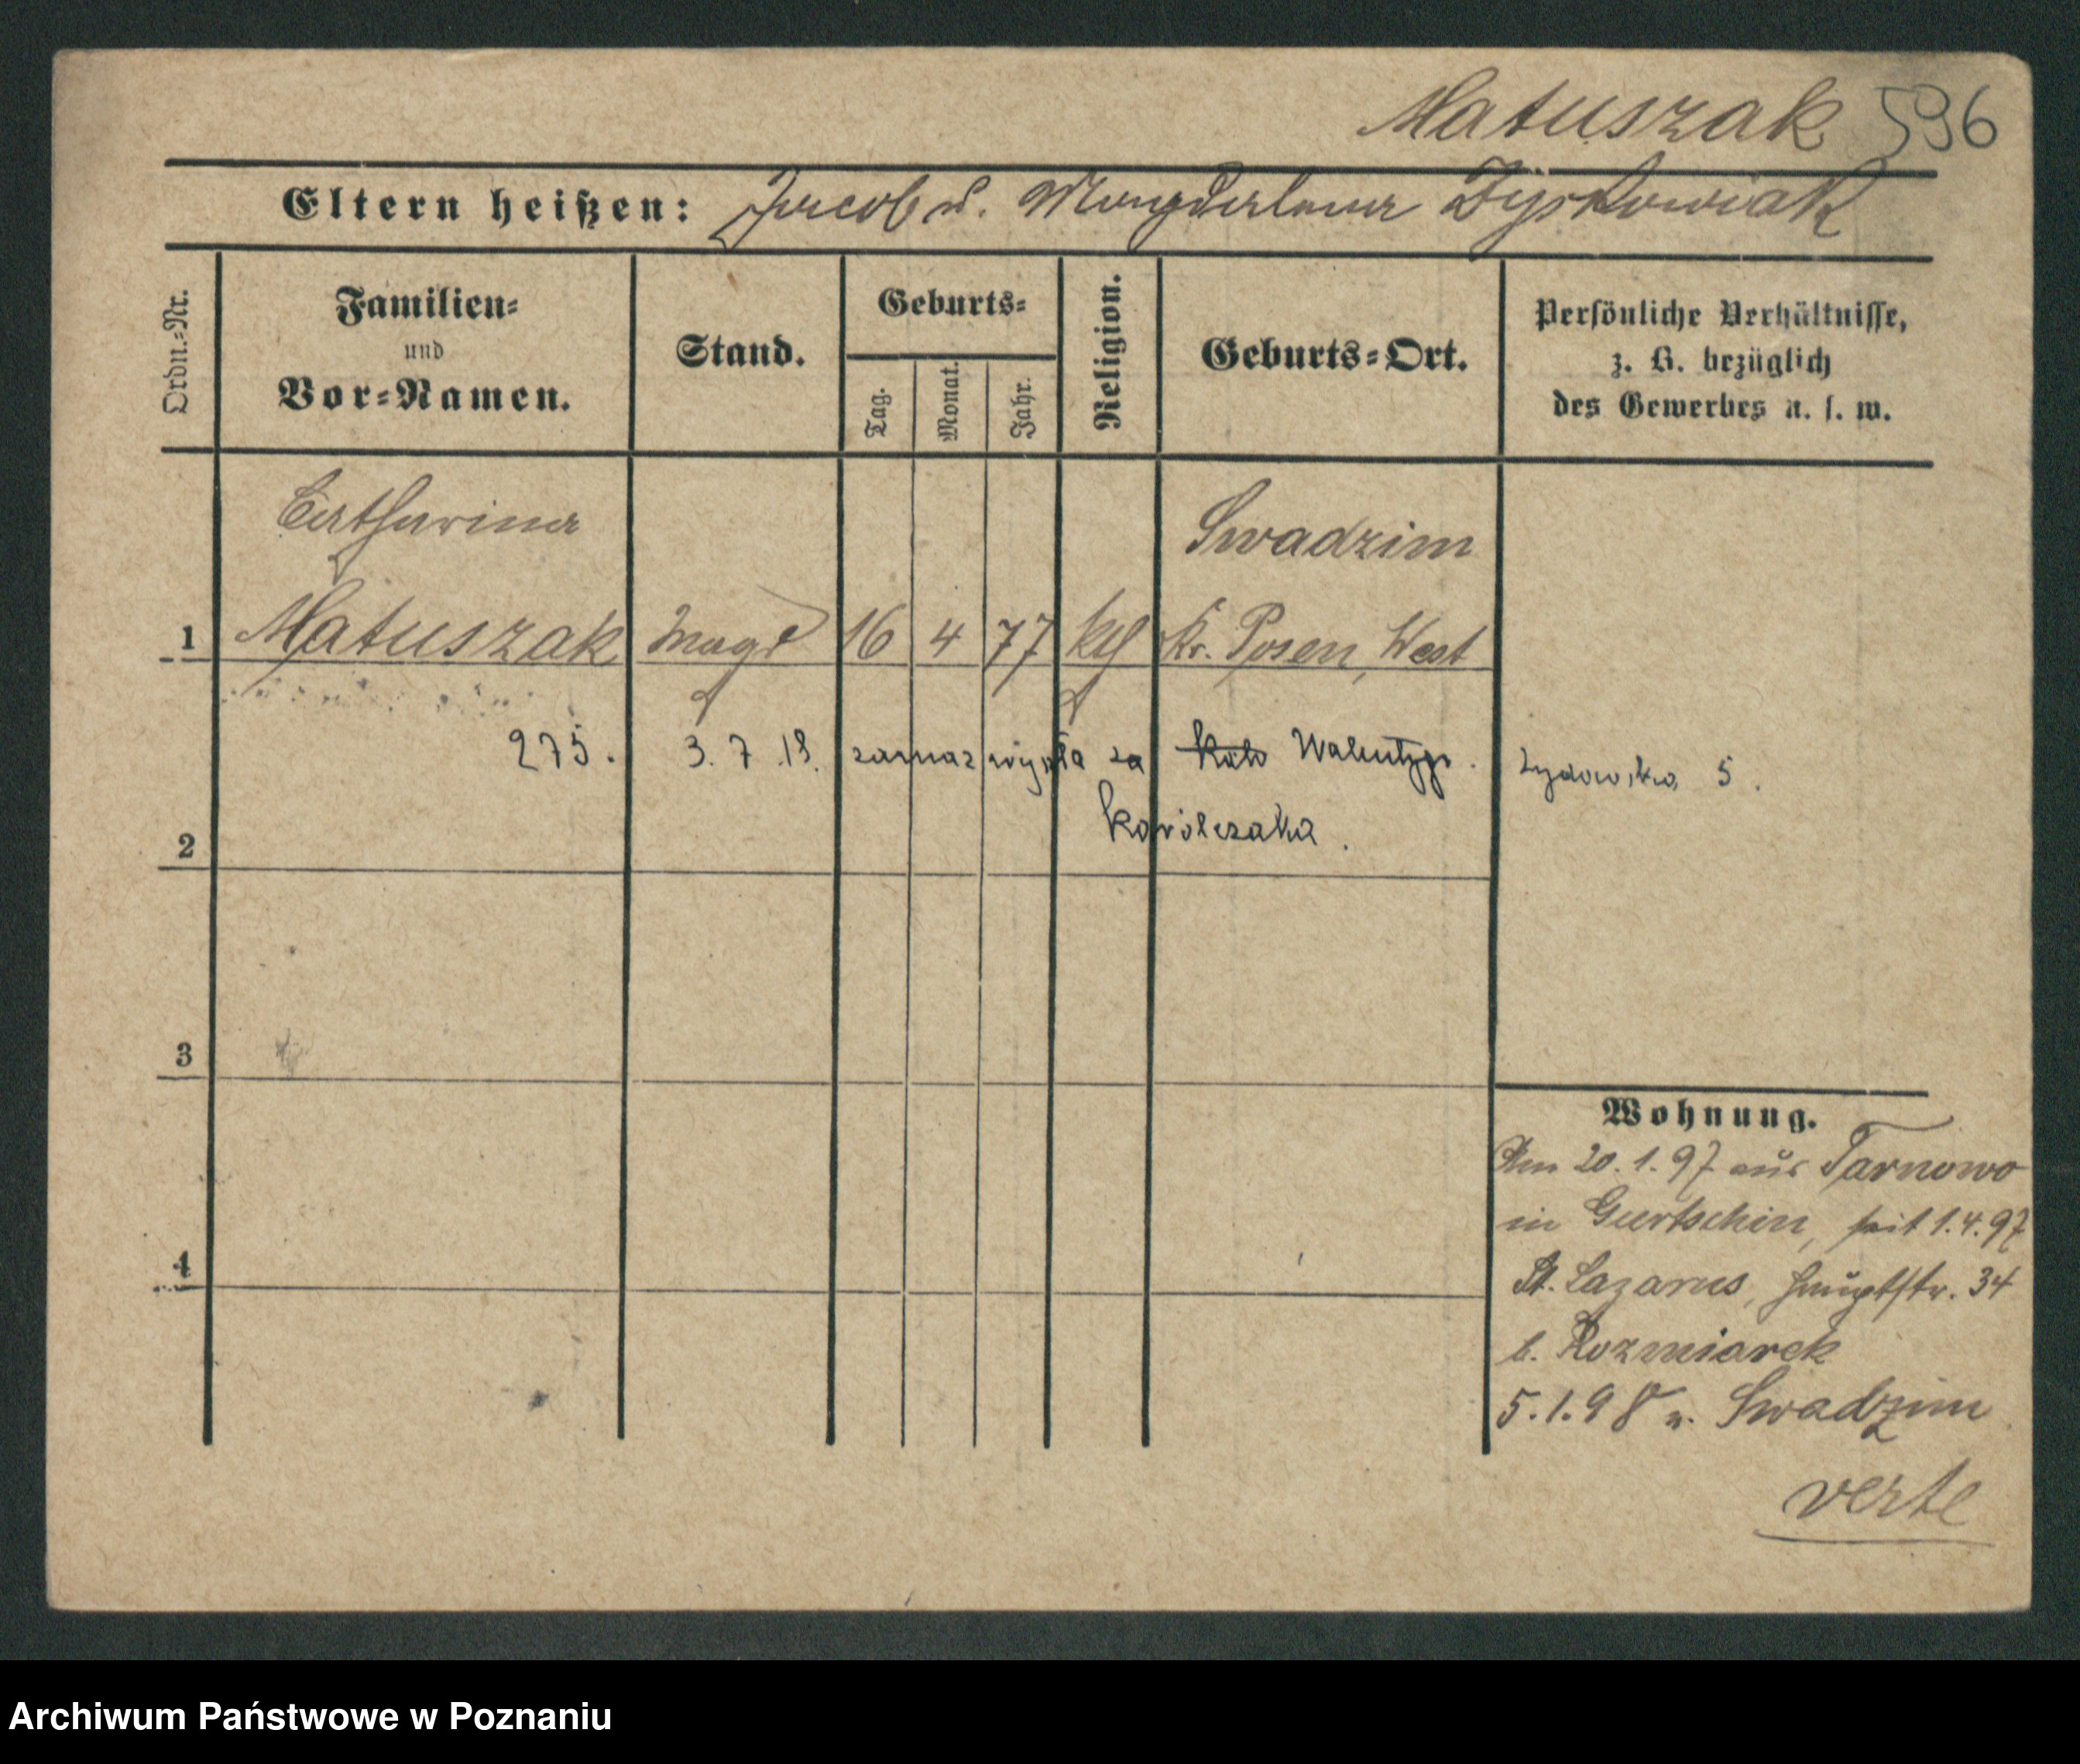 Matuszak 596
Eltern heißen: Jacob u. Magdalena Dyskowiak
Ordn.-Nr.
Familien-
und
Vor-Namen.
Stand.
Geburts-
Tag.
Monat.
Jahr.
Religion.
Geburts-Ort.
Persönliche Verhältnisse,
z. B. bezüglich
des Gewerbes u. s. w.
Catharina
Swadzim
1 Matuszak Magd 16 4 77 kth Kr. Posen, West
275. 3. 7. 19. zamaz wyszła za Walentego. Żydowska 5.
Karolczaka.
2
3
4
Wohnung.
Am 20.1.97 aus Tarnowo
in Gurtschin, seit 1.4.97
St. Lazarus, Hauptstr. 34
b. Rozmiarek
5.1.98 n. Swadzim
verte
Archiwum Państwowe w Poznaniu